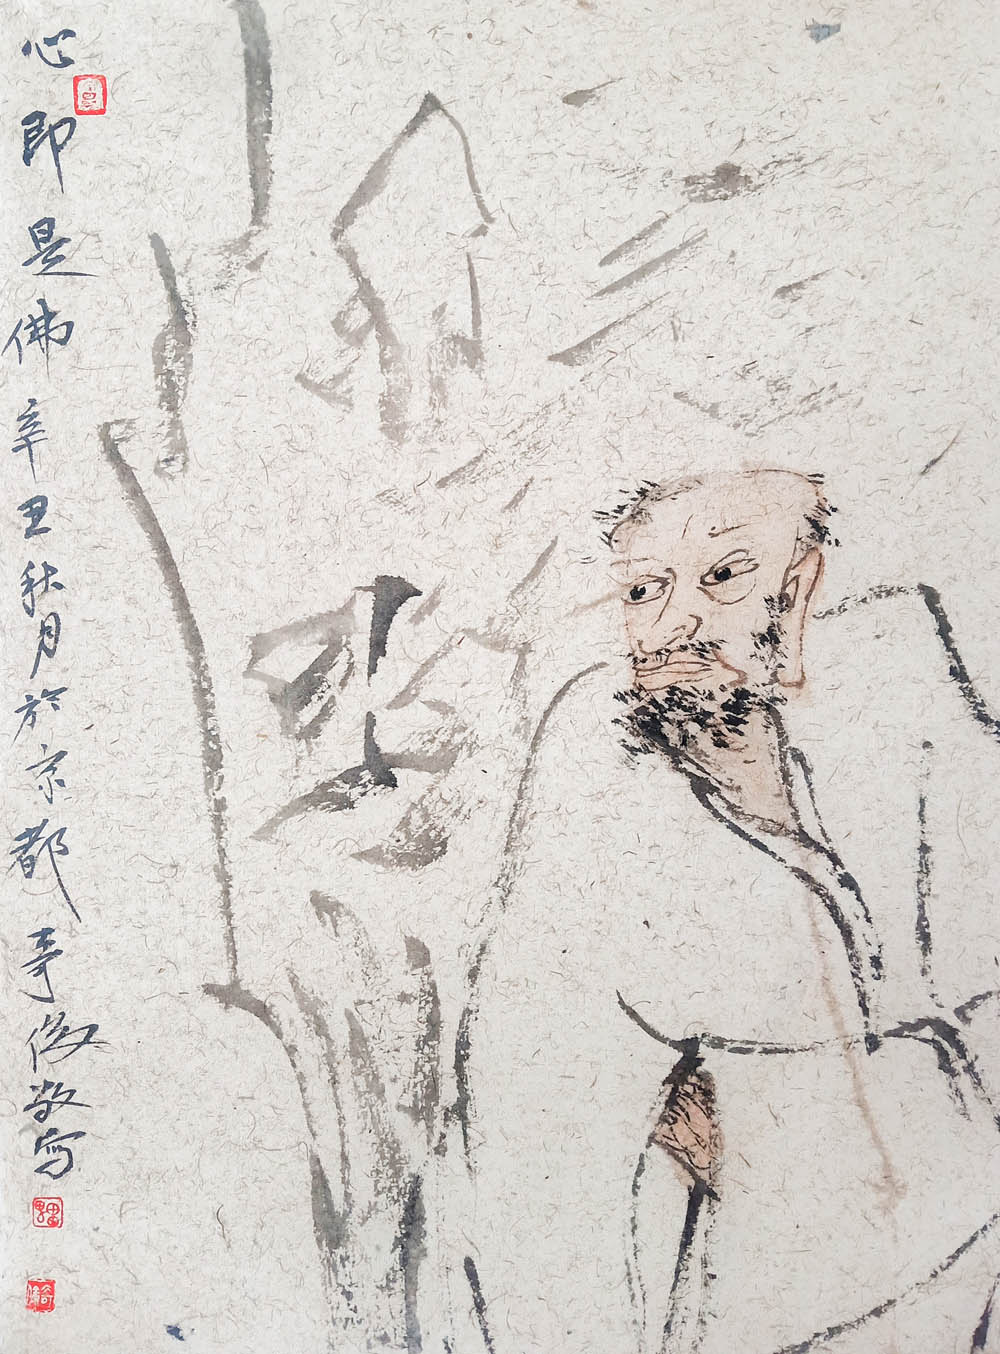 心即是佛 辛丑秋月於京都 奇俊敬写